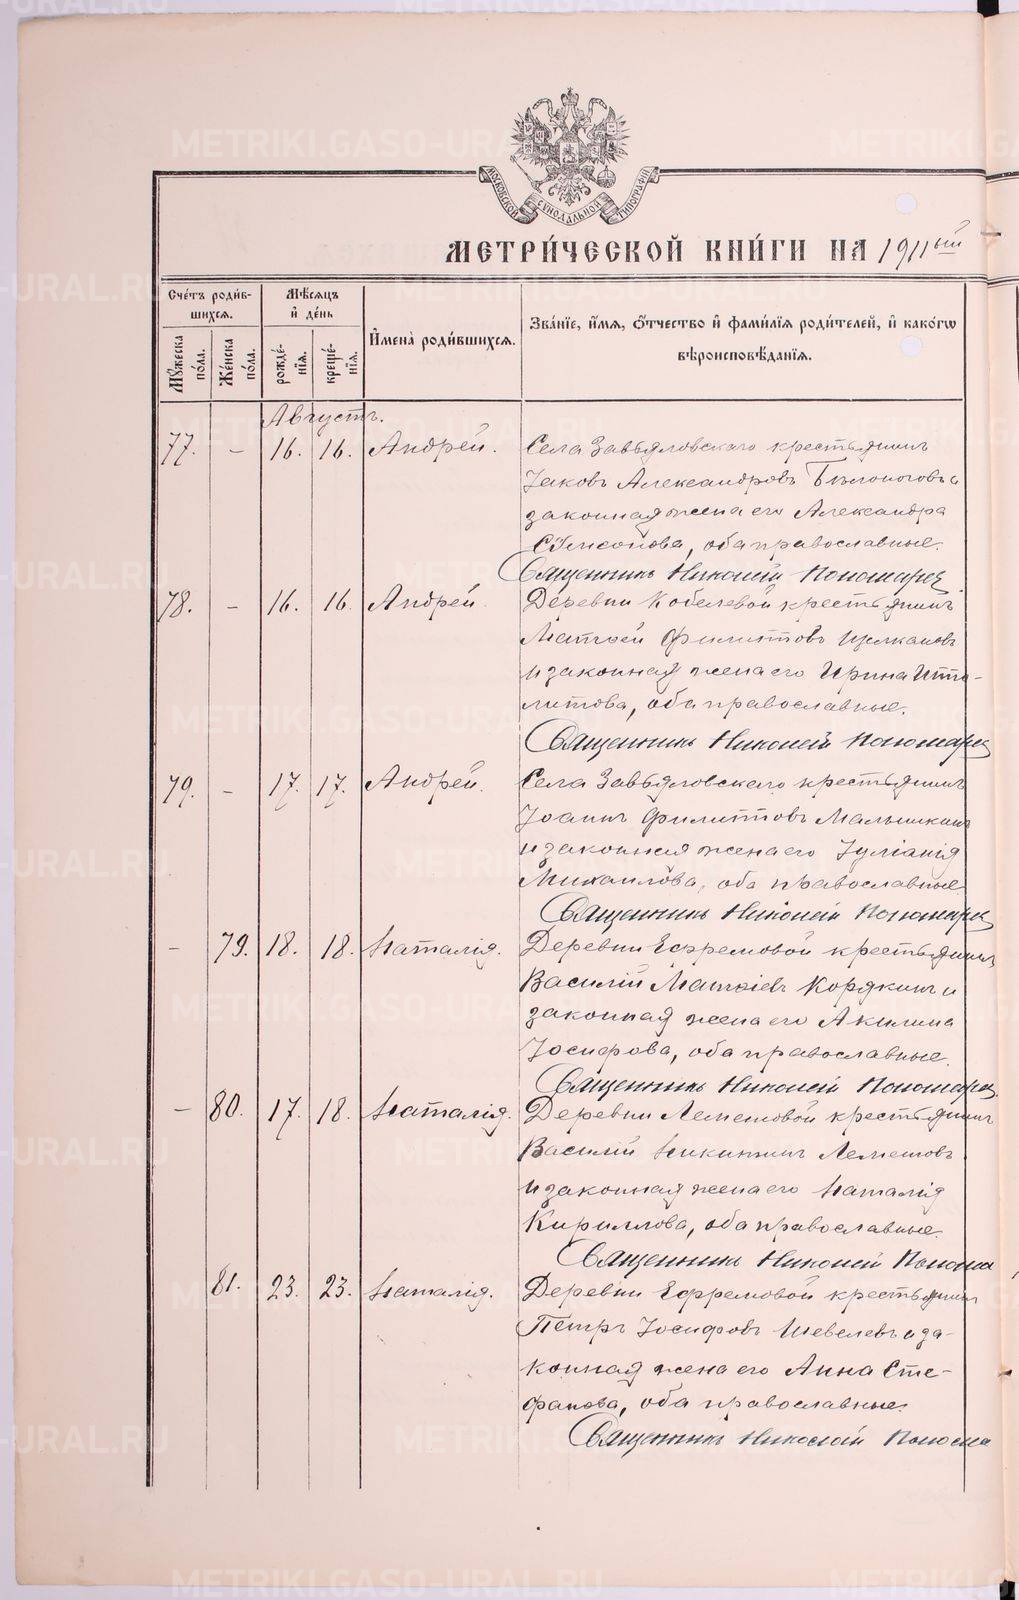 МОСКОВСКОЙ СѴНОДАЛЬНОЙ ТИПОГРАФІИ
МЕТРИ́ЧЕСКОЙ КНИ́ГИ НА 1911ый
Сче́тъ роди́вшихся.
Му́жеска по́ла.
Же́нска по́ла.
Мѣ́сяцъ и҆ де́нь
рожде́нїѧ.
креще́нїѧ.
И҆мена̀ роди́вшихся.
Зва́нїе, и҆́мѧ, ѻ҆́тчество и҆ фами́лїѧ роди́телей, и҆ како́гѡ
вѣроисповѣ́данїѧ.
Августъ.
77. – 16. 16. Андрей. Села Завьяловскаго крестьянинъ
Іаковъ Александровъ Бѣлоноговъ и
законная жена его Александра
Сѵмеонова, оба православные.
Священникъ Николай Пономарев
78. – 16. 16. Андрей. Деревни Кобелевой крестьянинъ
Матѳей Филипповъ Щелкановъ
и законная жена его Ирина Иппо-
литова, оба православные.
Священникъ Николай Пономарев
79. – 17. 17. Андрей. Села Завьяловскаго крестьянинъ
Іоаннъ Филипповъ Малышкинъ
и законная жена его Іуліанія
Михаилова, оба православные.
Священникъ Николай Пономарев
– 79. 18. 18. Наталія. Деревни Ефремовой крестьянинъ
Василій Матѳіевъ Корякинъ и
законная жена его Акилина
Іосифова, оба православные.
Священникъ Николай Пономарев
– 80. 17. 18. Наталія. Деревни Лемешовой крестьянинъ
Василій Никитинъ Лемешовъ
и законная жена его Наталія
Кириллова, оба православные.
Священникъ Николай Понома
81. 23. 23. Наталія. Деревни Ефремовой крестьянинъ
Петръ Іосифовъ Шевелевъ и за-
конная жена его Анна Сте-
фанова, оба православные.
Священникъ Николай Понома